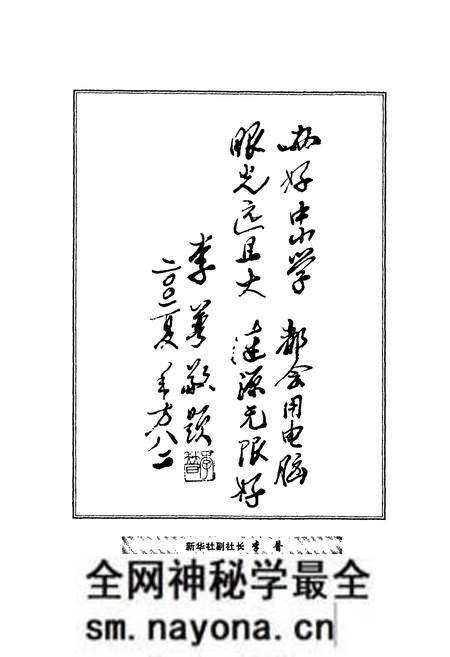 办好中小学 都会用电脑
眼光远且大 涟源无限好
李普敬题
二〇〇二夏 年方八二
李普
新华社副社长 李 普
全网神秘学最全
sm.nayona.cn